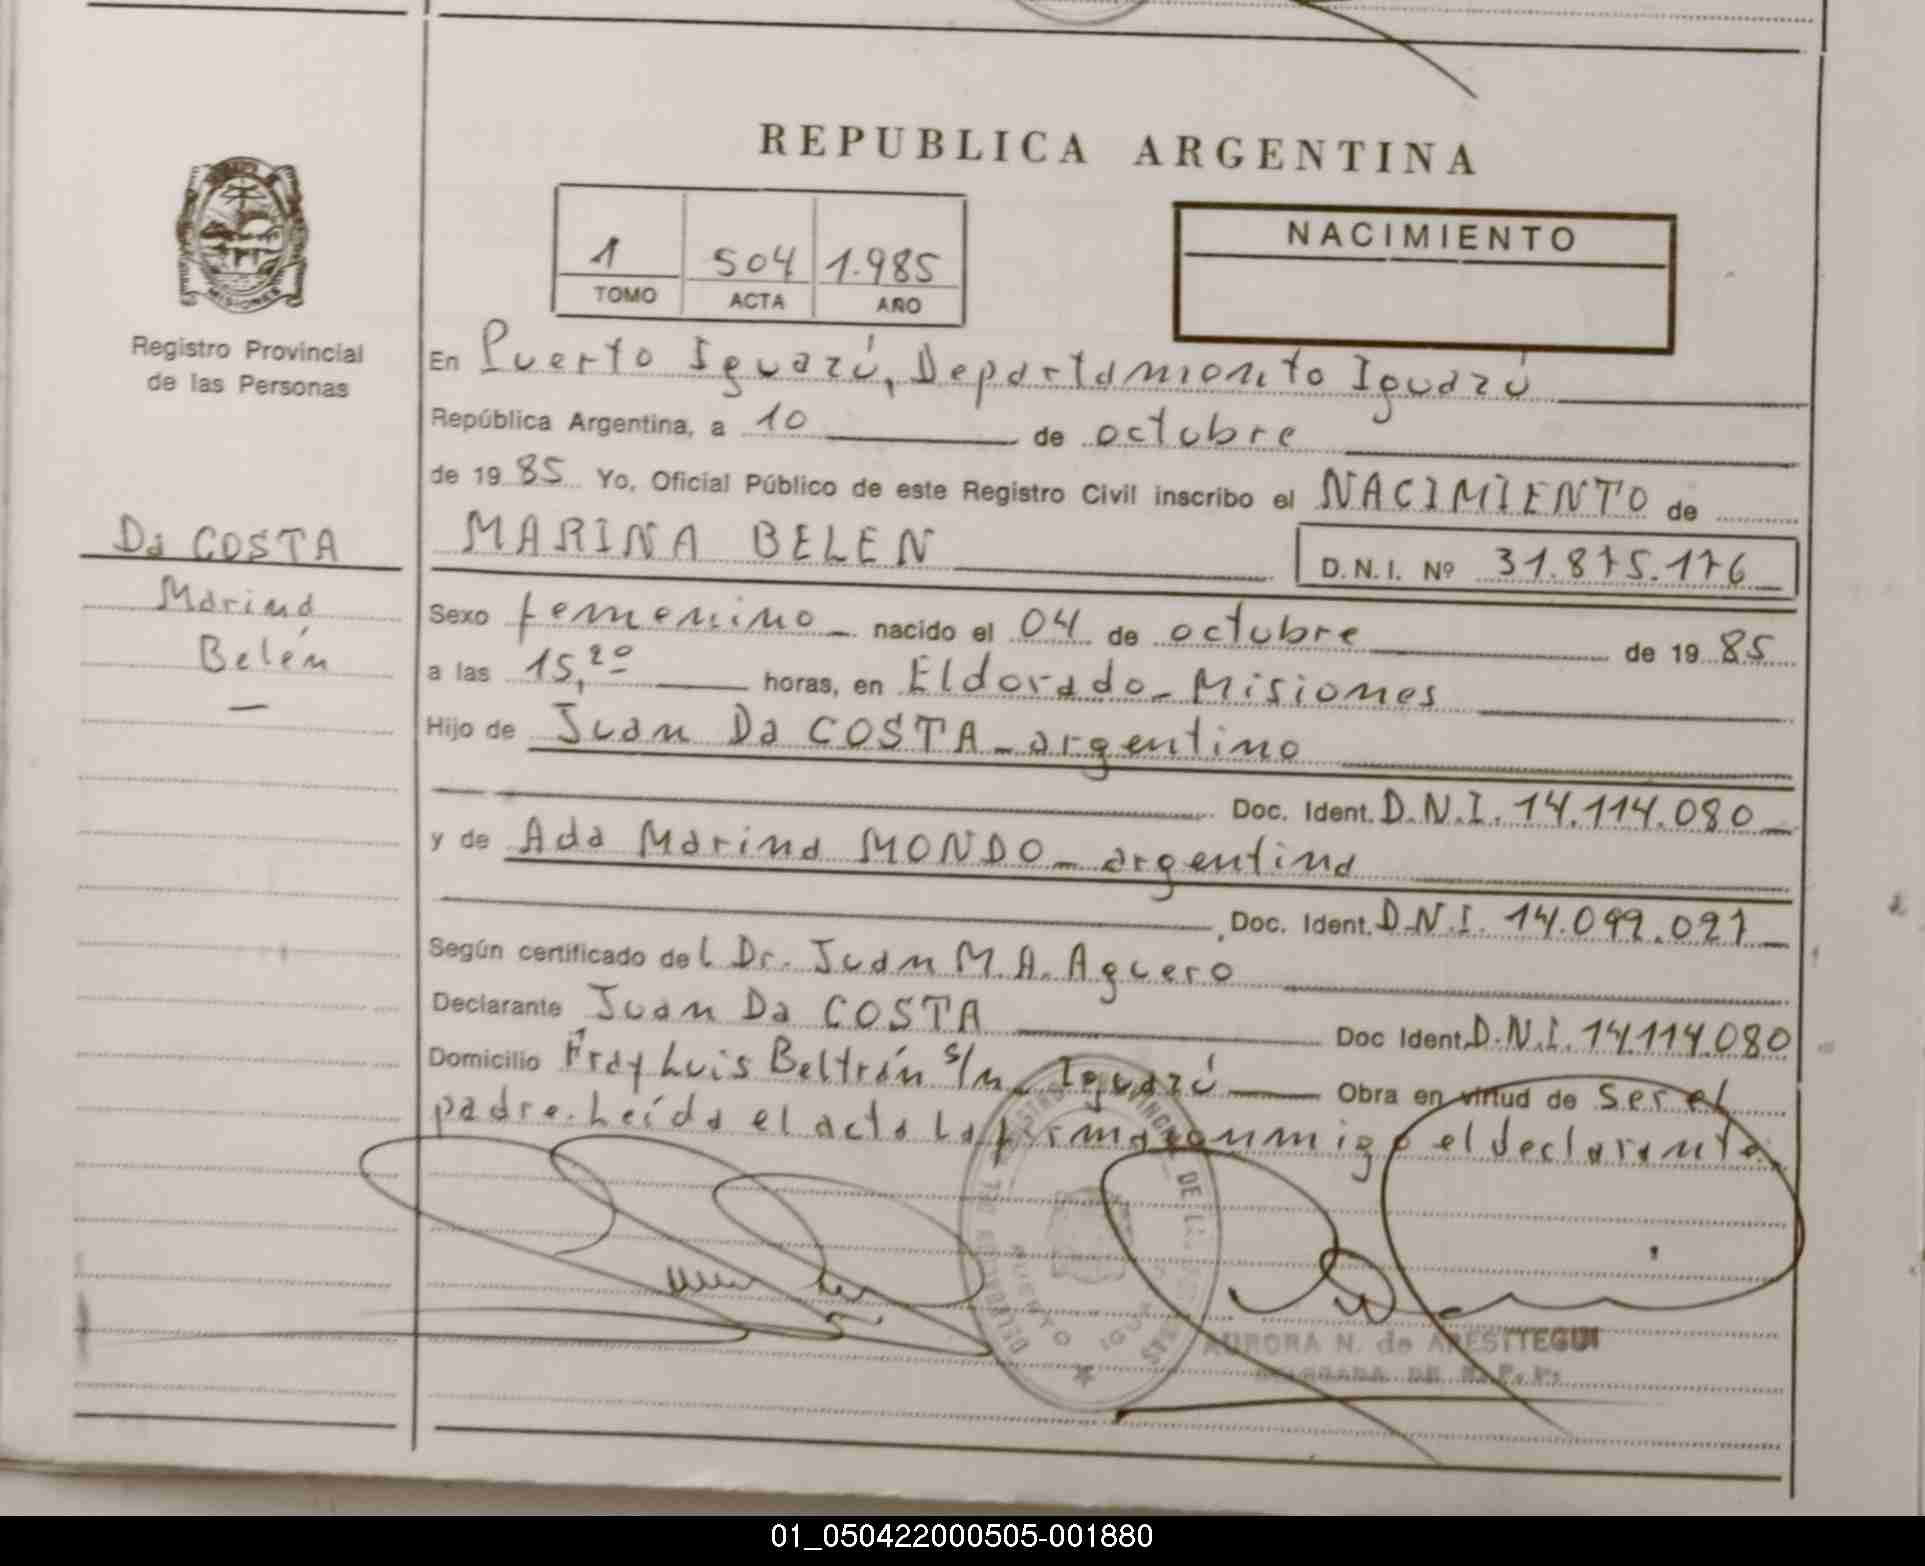 REPUBLICA ARGENTINA
1 504 1.985
TOMO ACTA AÑO
NACIMIENTO
MISIONES
Registro Provincial
de las Personas
Da COSTA
Marina
Belén
En Puerto Iguazú, Departamento Iguazú
República Argentina, a 10 de octubre
de 19 85 Yo, Oficial Público de este Registro Civil inscribo el NACIMIENTO de
MARINA BELEN D.N.I. Nº 31.875.176
Sexo femenino nacido el 04 de octubre de 19 85
a las 15,20 horas, en Eldorado - Misiones
Hijo de Juan Da COSTA - argentino
Doc. Ident. D.N.I. 14.114.080
y de Ada Marina MONDO - argentina
Doc. Ident. D.N.I. 14.099.021
Según certificado del Dr. Juan M.A. Aguero
Declarante Juan Da COSTA Doc Ident. D.N.I. 14.114.080
Domicilio Fray Luis Beltrán s/n - Iguazú Obra en virtud de ser el
padre. Leída el acta la firma conmigo el declarante.
AURORA N. de ARESTTEGUI
01_050422000505-001880